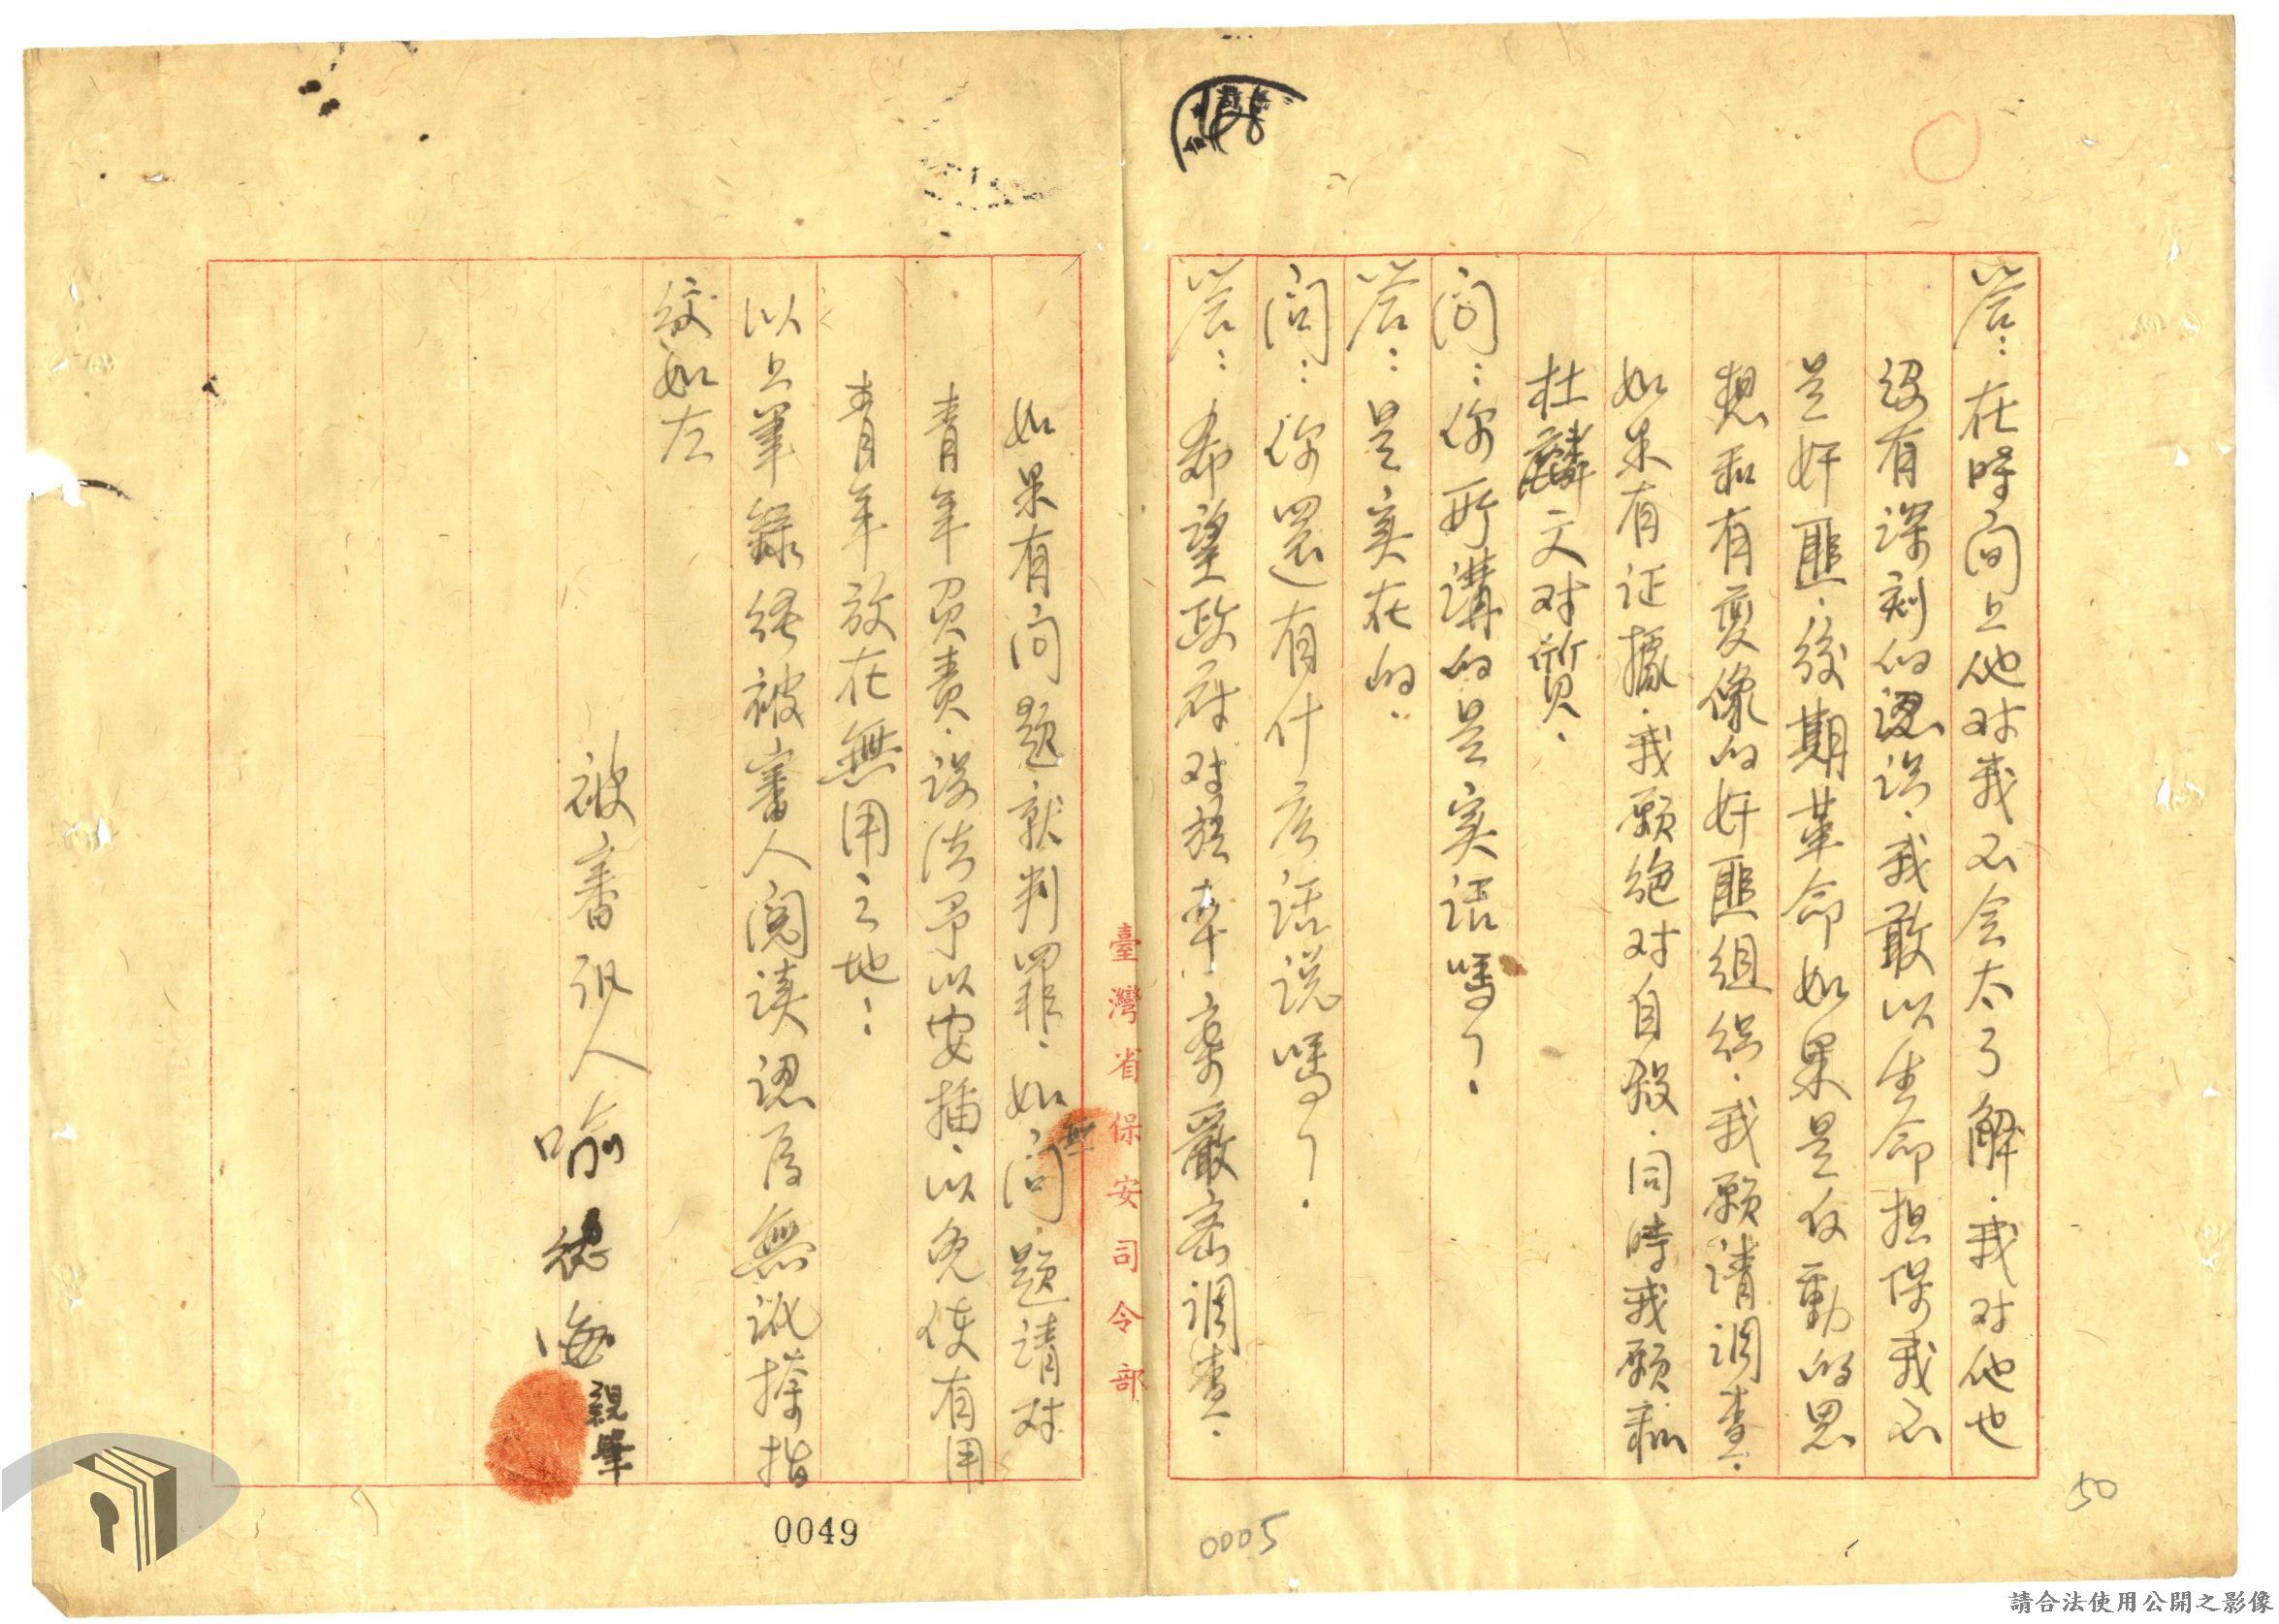 答：在時间上他对我不会太了解．我对他也
没有深刻的認识．我敢以生命担保我不
是奸匪．後期革命如果是反動的思
想和有变像的奸匪組织．我願請調查．
如未有证據．我願絶对自殺．同時我願和
杜麟文对質．
问：你所講的是实话嗎？
答：是实在的．
问：你還有什么话说嗎？
答：希望政府对於本案嚴密調查．
如果有问题．就判罪．如無问题請对
青年负责．设法予以安插．以免使有用
青年放在無用之地：
以上筆錄经被審人阅读認為無訛捺指
紋如左
被審讯人 喻 海 親筆
臺灣省保安司令部
0049
0005
50
請合法使用公開之影像